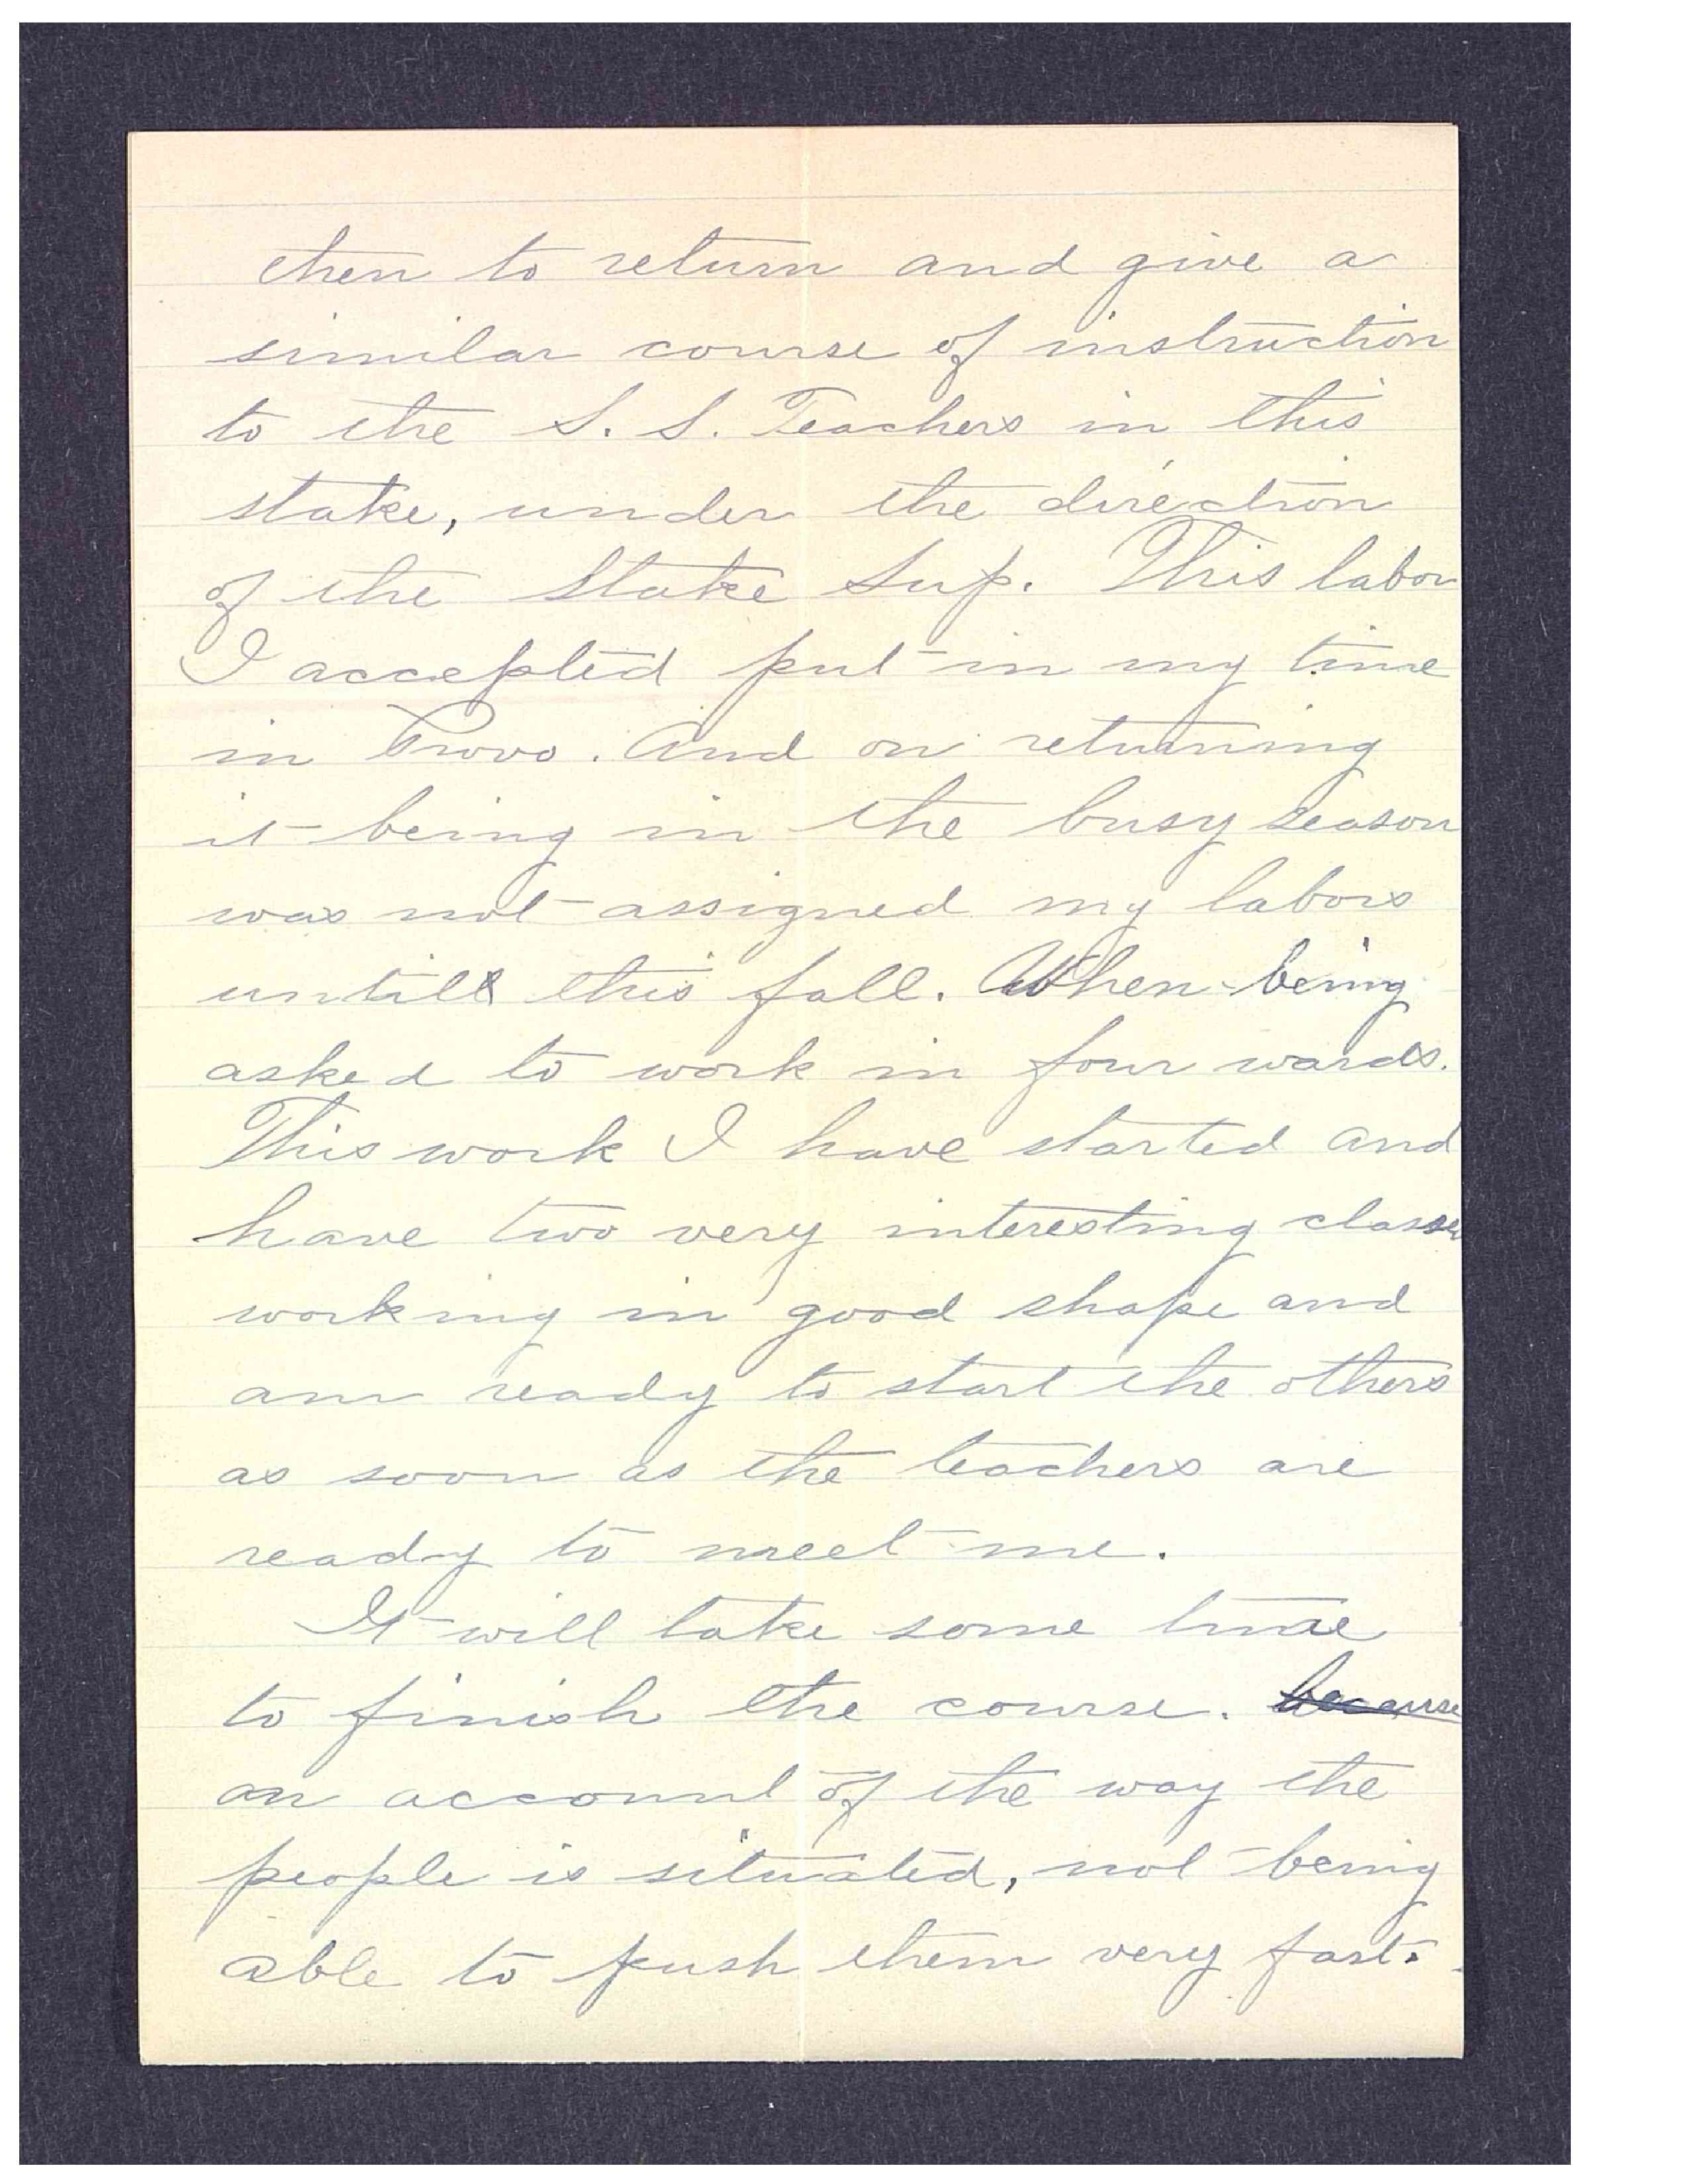 then to return and give a
similar course of instruction
to the S. S. Teachers in this
stake, under the direction
of the Stake Sup. This labor
I accepted put in my time
in Provo. And on returning
it being in the busy season
was not assigned my labors
untill this fall. When being
asked to work in four wards.
This work I have started and
have two very interesting classes
working in good shape and
am ready to start the others
as soon as the teachers are
ready to meet me.
It will take some time
to finish the course. because
on account of the way the
people is situated, not being
able to push them very fast.